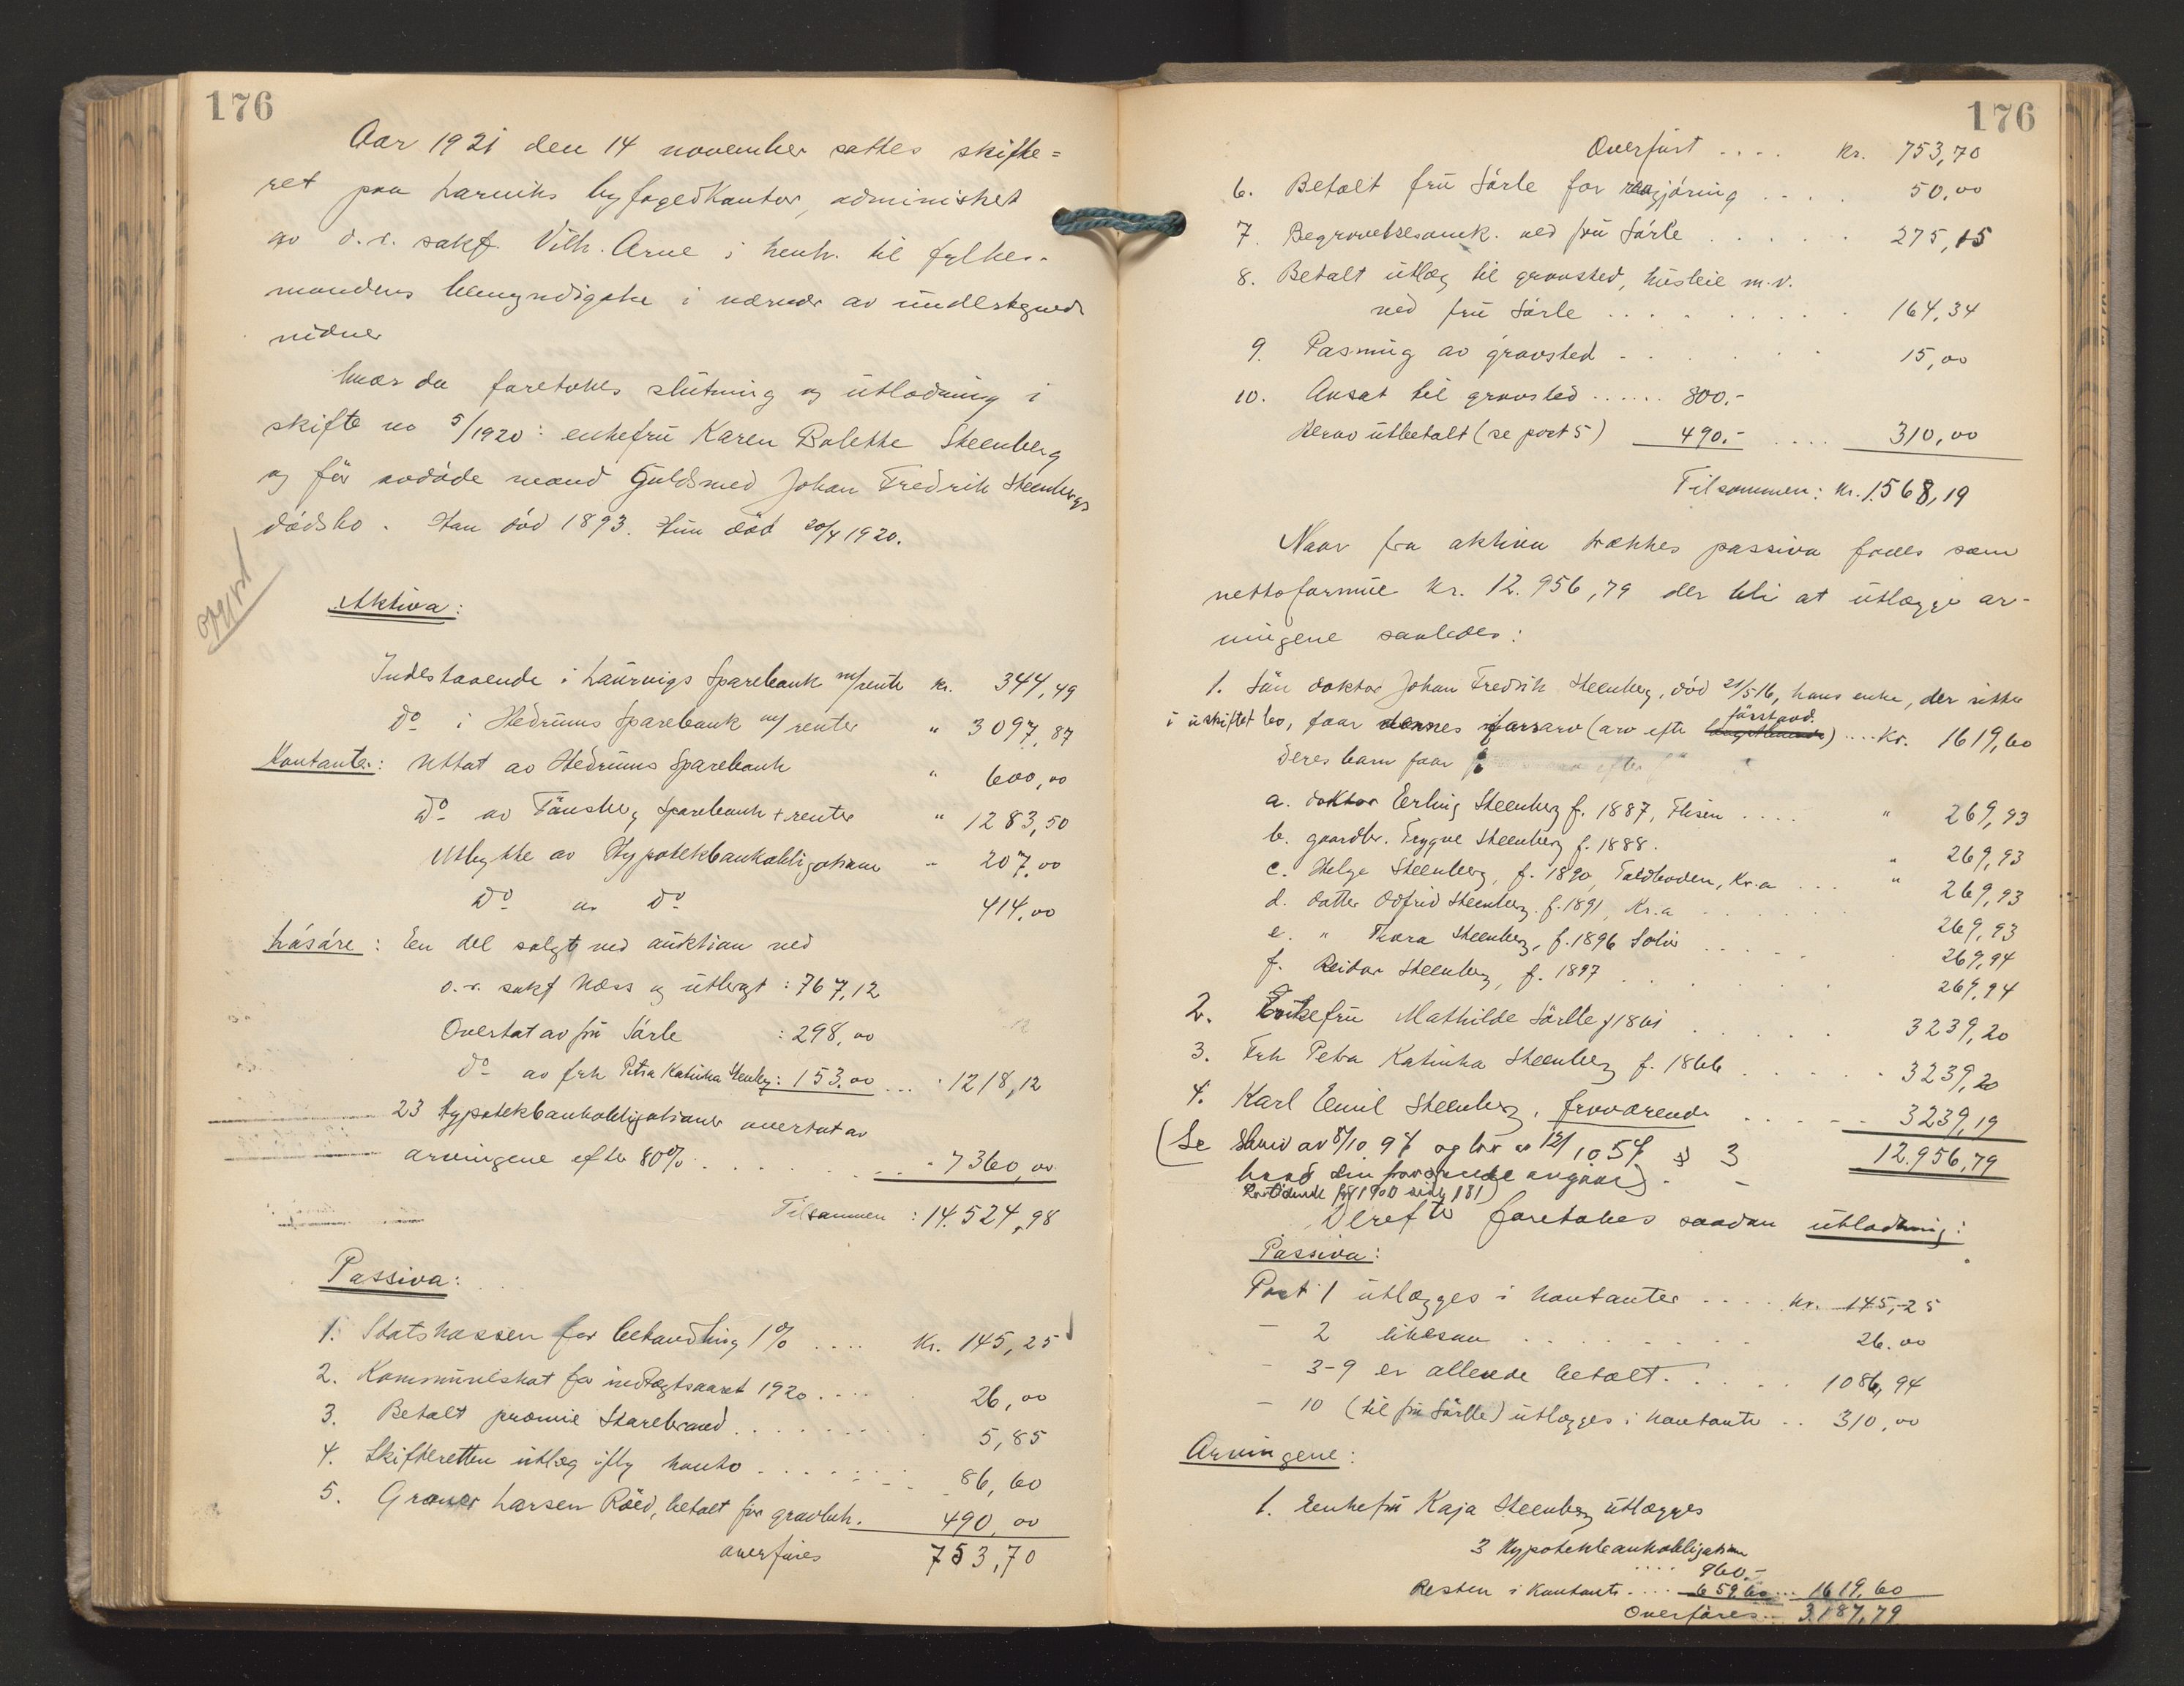 176
Aar 1921 den 14 november sattes skifte=
ret paa Larviks byfogedkontor, administret
av o.r. sakf. Vilh. Arne i henh. til fylkes-
mandens bemyndigelse i nærvær av undertegnede
vidner
hvor da foretokes slutning og utlodning i
skifte no 5/1920: enkefru Karen Bolette Steenberg
og før avdøde mand Guldsmed Johan Fredrik Steenbergs
dødsbo. Han død 1893. Hun død 20/4 1920.
Aktiva:
Indestaaende i Laurvigs Sparebank m/rente kr. 344,49
Do i Hedrums Sparebank m/renter " 3097,87
Kontanter: Uttat av Hedrums Sparebank " 600,00
Do av Tønsberg Sparebank + renter " 1283,50
Utbytte av Hypotekbankobligationer - 207,00
Do av Do 414,00
Løsøre: En del solgt ved auktion ved
o.r. sakf Næss og utbragt : 767,12
Overtat av fru Sørle : 298,00
do av frk Petra Katinka Steenberg: 153,00 ... 1218,12
23 Hypotekbankobligationer overtat av
arvingene efter 80% . . . . 7360,00
Tilsammen : 14.524,98
Passiva:
1. Statskassen for behandling 1% .... Kr. 145,25
2. Kommuneskat for indtægtsaaret 1920 .... 26,00
3. Betalt præmie Storebrand ........ 5,85
4. Skifteretten utlæg iflg konto ...... 86,60
5. Graver Larsen Røed, betalt for gravluk. 490,00
overføres 753,70
176
Overført .... Kr. 753,70
6. Betalt fru Sørle for rengjøring .... 50,00
7. Begravelsesomk. ved fru Sørle ..... 275,15
8. Betalt utlæg til gravsted, husleie m.v.
ved fru Sørle ......... 164,34
9. Pasning av gravsted ...... 15,00
10. Avsat til gravsted ...... 800.-
Herav utbetalt (se post 5) 490.- .... 310,00
Tilsammen: Kr. 1568,19
Naar fra aktiva trækkes passiva faaes som
nettoformue kr. 12.956,79 der bli at utlægge ar-
vingene saaledes:
1. Søn doktor Johan Fredrik Steenberg, død 21/5 16, hans enke, der sitter
i uskiftet bo, faar dennes farsarv (arv efter førstavd.) .... Kr. 1619,60
Deres barn faar
a. doktor Erling Steenberg f. 1887, Flisen .... " 269,93
b. gaardbr. Trygve Steenberg f. 1888. " 269,93
c. Helge Steenberg, f. 1890, Toldboden, Kr.a ... " 269,93
d. datter Odfrid Steenberg. f. 1891, Kr.a 269,93
e. " Thora Steenberg, f. 1896 Solør 269,94
f. Reidar Steenberg, f. 1897 269,94
2. Enkefru Mathilde Sørlle f 1861 3239,20
3. Frk Petra Katinka Steenberg f. 1866 3239,20
4. Karl Emil Steenberg, fraværende 3239,19
12.956,79
(Se Skriv av 8/10 97 og brev av 12/10 57 3
hvad den fraværende angaar)
Derefter foretokes saadan utlodning:
Passiva:
Post 1 utlægges i kontanter .... kr. 145,25
- 2 likesaa ........ 26.00
- 3-9 er allerede betalt. .... 1086,94
- 10 (til fru Sørlle) utlægges i kontanter .. 310,00
Arvingene:
1. Enkefru Kaja Steenberg utlægges
3 Hypotekbankobligationer
.... 960.-
Resten i kontanter .... 659,60 ... 1619,60
Overføres .. 3.187,79